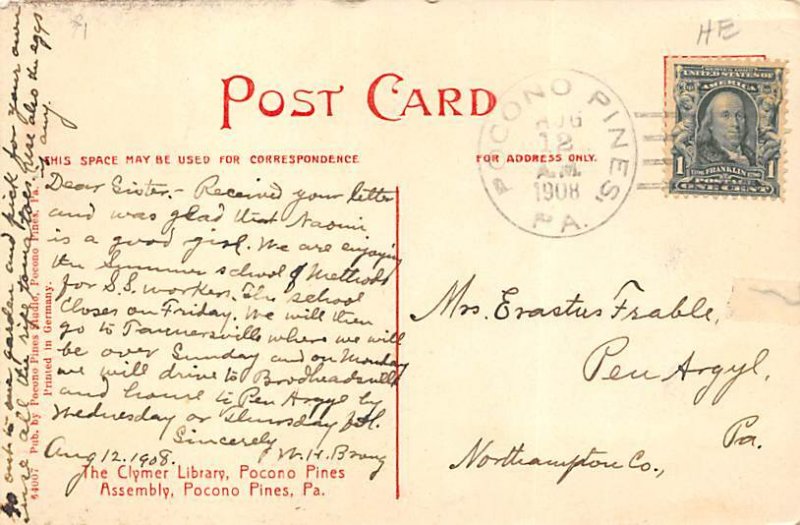 HB
POST CARD
THIS SPACE MAY BE USED FOR CORRESPONDENCE
FOR ADDRESS ONLY.
POCONO PINES,
AUG
12
A.M.
1908
PA.
UNITED STATES OF
AMERICA
1
FRANKLIN
POSTAGE
ONE CENT
Dear Sister.- Received your letter
and was glad that Naomi
is a good girl. We are enjoying
the Summer school of Methods
for S.S. workers. The school
closes on Friday. We will then
go to Tannersville where we will
be over Sunday and on Monday
we will drive to Brodheadsville
and home to Pen Argyl by
Wednesday or Thursday
Sincerely
Aug 12. 1908. W. H.
go out to our garden and pick for your own
use all the ripe tomatoes. Use also the eggs
if any.
64007 Pub. by Pocono Pines Studio, Pocono Pines, Pa.
Printed in Germany.
The Clymer Library, Pocono Pines
Assembly, Pocono Pines, Pa.
Mrs. Erastus Frable,
Pen Argyl,
Pa.
Northampton Co.,